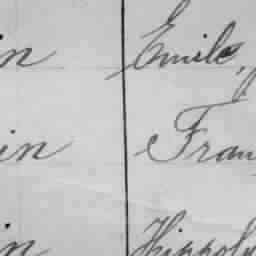 in Emile,
in Fran
in Hippoly